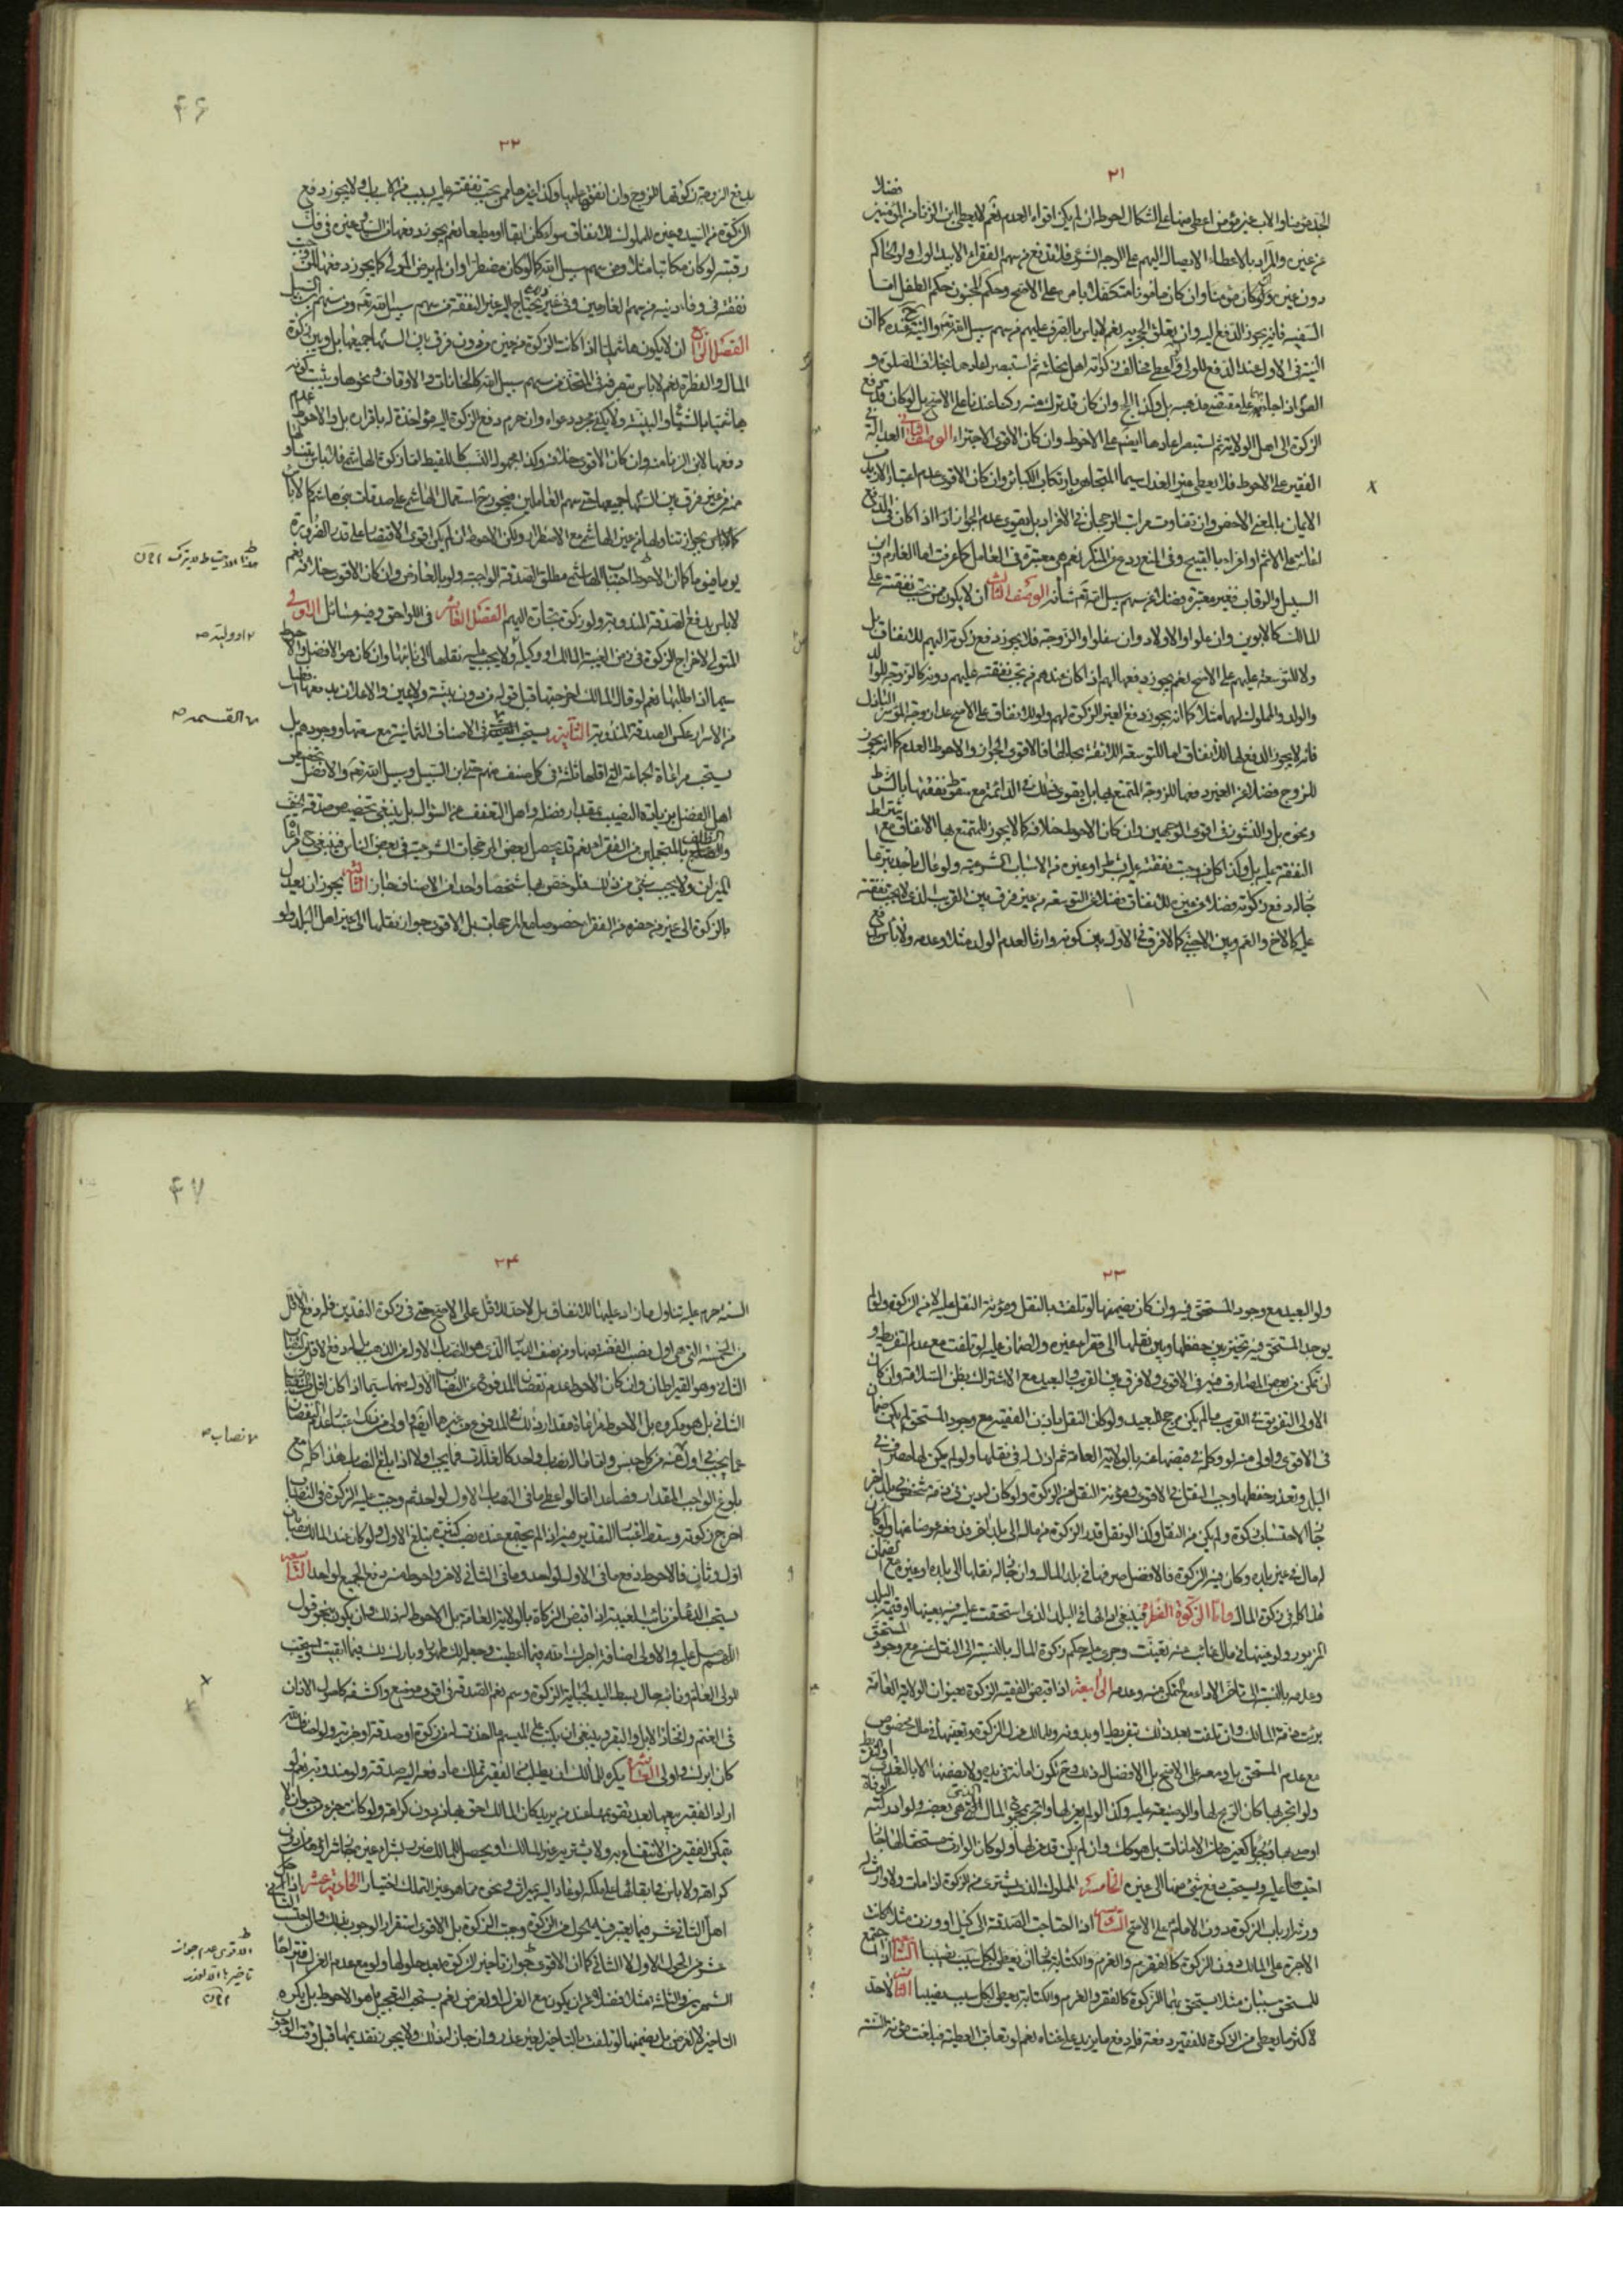 ٢١
فضلا
الجد مؤمنا والاب غير مؤمن اعطي منها على اشكال احوطه ان لم يكن اقواه العدم نعم لا يعطى ابن الزنا من المؤمنين
من غيره والمراد بالاعطاء الايصال اليهم على الوجه الشرعي فلا تدفع من سهم الفقراء الا بيد الولي ولو الحاكم
دون غيره ولو كان مؤمنا وان كان مأمونا متكفلا بامره على الاصح وحكم المجنون حكم الطفل اما
السفيه فانه يجوز الدفع اليه وان تعلق الحجر به نعم لا بأس بالصرف عليهم من سهم سبيل الله تعالى والنية عنده كما ان
النية في الاول عند الدفع للولي ولو اعطى مخالف زكوته اهل نحلته ثم استبصر اعادها بخلاف الصلوة و
الصوم اذا جاء بهما على مقتضى مذهبه بل وكذا الحج وان كان قد ترك منه ركنا عندنا على الاصح بل لو كان قد دفع
الزكوة الى اهل الولاية ثم استبصر اعادها ايضا على الاحوط وان كان الاقوى الاجتزاء الوصف الثاني العدالة في
الفقير على الاحوط فلا يعطى غير العدل سيما المتجاهر بارتكاب الكبائر وان كان الاقوى عدم اعتبار الازيد من
الايمان بالمعنى الاخص وان تفاوت مراتب الرجحان في الافراد بل يقوى عدم الجواز اذا كان في الدفع
اعانة على الاثم او اغراء بالقبيح وفي المنع ردع عن المنكر نعم هي معتبرة في العامل كما عرفت اما الغارم وابن
السبيل والرقاب فغير معتبرة فضلا عن سهم سبيل الله تعالى شأنه الوصف الثالث ان لا يكون ممن تجب نفقته على
المالك كالابوين وان علوا والاولاد وان سفلوا والزوجة فلا يجوز دفع زكوته اليهم للانفاق بل
ولا للتوسعة عليهم على الاصح نعم يجوز دفعها اليهم اذا كان عندهم من تجب نفقته عليهم دونه كالزوجة للوالد
والولد والمملوك لهما مثلا كما انه يجوز دفع الغير الزكوة لهم ولو للانفاق على الاصح عدا زوجة الموسر الباذل
فانه لا يجوز الدفع لها للانفاق اما للتوسعة اللائقة بحالها فالاقوى الجواز والاحوط العدم كما انه يجوز
للزوج فضلا عن الغير دفعها للزوجة المتمتع بها بل يقوى ذلك في الدائمة مع سقوط نفقتها بالشرط
ونحوه بل والنشوز في اقوى الوجهين وان كان الاحوط خلافه كما لا يجوز للمتمتع بها الانفاق مع اشتراط
النفقة عليه بل وكذا كل من وجبت نفقته عليه بشرط او غيره من الاسباب الشرعية ولو عال بأحد تبرعا
جاز له دفع زكوته فضلا عن غيره للانفاق فضلا عن التوسعة من غير فرق بين القريب الذي لا يجب نفقته
عليه كالاخ والعم وبين الاجنبي كما لا فرق في الاول بين كونه وارثا لعدم الولد مثلا وعدمه ولا بأس
٤٦
٢٢
بدفع الزوجة زكوتها للزوج وان انفقها عليها وكذا غيرها ممن تجب نفقته عليه بسبب من الاسباب ولا يجوز دفع
الزكوة من السيد وغيره للمملوك للانفاق سواء كان آبقا او مطيعا نعم يجوز دفعها من السيد وغيره في فك
رقبته لو كان مكاتبا مثلا ومن سهم سبيل الله كما لو كان مضطرا وان لم يرض المولى كما يجوز دفعها لمن تجب
نفقته في وفاء دينه من سهم الغارمين وفي غيره مما يحتاج اليه غير النفقة من سهم سبيل الله تعالى ومن سهم ابن السبيل
الفصل الرابع ان لا يكون هاشميا اذا كانت الزكوة من غيره من دون فرق بين السهام اجمعها بل وبين زكوة
المال والفطرة نعم لا بأس بتصرفه في المتخذ من سهم سبيل الله كالخانات والاوقاف ونحوها ويثبت كونه
هاشميا بالشياع والبينة ولا يكفي مجرد دعواه وان حرم دفع الزكوة اليه مؤاخذة له باقراره بل والاحوط عدم
دفعها لابن الزنا منه وان كان الاقوى خلافه وكذا مجهول النسب كاللقيط اما زكوة الهاشمي فلا بأس بتناولها
منه من غير فرق بين السهام اجمعها حتى سهم العاملين فيجوز استعمال الهاشمي على صدقات بني هاشم كما لا بأس
كما لا بأس بجواز تناولها من غير الهاشمي مع الاضطرار ولكن الاحوط ان لم يكن اقوى الاقتصار على قدر الضرورة
يوما فيوما كما ان الاحوط اجتناب الهاشمي مطلق الصدقة الواجبة ولو بالعارض وان كان الاقوى خلافه نعم
لا بأس بدفع الصدقة المندوبة ولو زكوة تجارة اليهم الفصل العاشر في اللواحق وفيه مسائل الاولى
المتولي لاخراج الزكوة في زمن الغيبة المالك او وكيله ولا يجب عليه نقلها الى نائبها وان كان هو الافضل والاحوط
سيما اذا طلبها نعم لو قال المالك اخرجتها قبل قوله من دون بينة ولا يمين والاعلان بدفعها افضل
من الاسرار عكس الصدقة المندوبة الثانية يستحب في الاصناف الثمانية مع سعتها ووجودهم بل
يستحب مراعاة الجماعة التي اقلها ثلثة في كل صنف منهم حتى ابن السبيل وسبيل الله تعالى والافضل تخصيص
اهل الفضل بزيادة النصيب بمقدار فضلهم واهل التعفف عن السؤال بل ينبغي تخصيص صدقة الخف
والظلف بالمتجملين من الفقراء نعم قد يحصل بعض المرجحات الشرعية في بعض الناس فينبغي مراعاة
الميزان ولا يجب شيء من ذلك فلو خص بها شخصا واحدا من الاصناف جاز الثالثة يجوز ان يعدل
بالزكوة الى غير من حضره من الفقراء خصوصا مع المرجحات بل الاقوى جواز نقلها الى غير اهل البلد ولو
هذا الاحتياط لا يترك
او وليه صح
القسمة صح
٢٣
ولو البعيد مع وجود المستحق فيه وان كان يضمنها لو تلفت بالنقل ومؤنة النقل عليه لا من الزكوة ولو لم
يوجد المستحق فيه تخير بين حفظها وبين نقلها الى فقراء غيره ولا ضمان عليه لو تلفت مع عدم التفريط و
ان تمكن من بعض المصارف فيه في الاقوى ولا فرق بين القريب والبعيد مع الاشتراك بظن السلامة وان كان
الاولى التفريق في القريب ما لم يكن مرجح للبعيد ولو كان النقل باذن الفقيه مع وجود المستحق لم يكن ضمان
في الاقوى واولى منه لو وكله في قبضها عنه بالولاية العامة ثم اذن له في نقلها ولو لم يكن لها مصرف في
البلد وتعذر حفظها وجب النقل في الاقوى ومؤنة النقل من الزكوة ولو كان له دين في ذمة شخص في بلد اخر
جاز احتسابه زكوة ولم يكن من النقل وكذا لو نقل قدر الزكوة من ماله الى بلد اخر فدفعه عوضا عنها ولو كان
له مال في غير بلده وكان فيه الزكوة فالافضل صرفها في بلد المال وان جاز له نقلها الى بلده او غيره مع الضمان
هذا كله في زكوة المال واما الزكوة الفطرة فينبغي ادائها في البلد الذي استحقت عليه فيه بعينها او قيمة البلد
المزبور ولو عينها في مال غائب عنه تعينت وجرى عليه حكم زكوة المال بالنسبة الى النقل منه مع وجود المستحق
وعدمه بالنسبة الى تاخر الاداء مع التمكن منه وعدمه الرابعة اذا قبض الفقيه الزكوة بعنوان الولاية العامة
برئت ذمة المالك وان تلفت بعد ذلك بتفريط او بدونه وللمالك عزل الزكوة وتعيينها في مال مخصوص
مع عدم المستحق بل ومعه على الاصح بل الافضل له ذلك وح تكون امانة في يده ولا يضمنها الا بالتعدي او التفريط
ولو اتجر بها كان الربح لها والوضيعة عليه وكذا لو لم يعزلها واتجر بمجموع المال الذي هي بعضه ولو ادركته الوفاة
اوصى بها وجوبا كغيرها من الامانات بل هو كذلك وان لم يكن قد عزلها ولو كان الوارث مستحقا لها جاز
احتسابها عليه ويستحب دفع شيء منها الى غيره الخامسة المملوك الذي يشترى من الزكوة اذا مات ولا وارث له
ورثه ارباب الزكوة دون الامام على الاصح السادسة اذا احتاجت الصدقة الى كيل او وزن مثلا كانت
الاجرة على المالك السابعة اذا اجتمع
للمستحق سببان مثلا يستحق بهما الزكوة كالفقر والغرم والكتابة جاز ان يعطى لكل سبب نصيبا الثامنة لا حد
لاكثر ما يعطى من الزكوة للفقير دفعة فله دفع ما يزيد على غناه نعم لو تعاقب العطية فبلغت مؤنة السنة
٤٧
٢٤
السنة حرم عليه تناول ما زاد عليها للانفاق بل لا حد للاقل على الاصح حتى في زكوة النقدين فله دفع الاقل
من الخمسة التي هي اول نصب الفضة منها ومن نصف الدينار الذي هو النصاب الاول من الذهب بل له دفع الاقل من النصاب
الثاني وهو القيراطان وان كان الاحوط عدم نقصان المدفوع عن النصاب الاول منهما سيما اذا كان اقل من النصاب
الثاني بل هو مكروه بل الاحوط مراعاة مقدار ذلك في المدفوع من غيرهما ايضا واولى من ذلك اعتبار عدم النقصان
عما يجب في اول من كل جنس واما ماله نصاب واحد كالغلات فما يجب اولا اذا بلغ النصاب هذا كله مع
بلوغ الواجب المقدار فصاعدا فلو اعطى ما في النصاب الاول لواحد ثم وجب عليه الزكوة في النصاب
اخرج زكوته وسقط اعتبار التقدير فيه اذا لم يجتمع عنده نصب كثيرة تبلغ الاول ولو كان عند المالك نصابان
اول وثان فالاحوط دفع ما في الاول لواحد وما في الثاني لاخر واحوط منه دفع الجميع لواحد التاسعة
يستحب الدعاء من نائب الغيبة اذا قبض الزكاة بالولاية العامة بل الاحوط له ذلك وان يكون بنحو قول
اللهم صل عليه والاولى اضافة اجرك الله فيما اعطيت وجعله لك طهورا وبارك لك فيما ابقيت ويستحب
لولي العام ونائبه حال بسط اليد لجباية الزكوة وسم نعم الصدقة في اقوى موضع واكشفه كاصول الاذان
في الغنم وافخاذ الابل والبقر وينبغي ان يكتب على الميسم ما اخذت له من زكوة او صدقة او جزية ولو اضاف لله
كان ابرك واولى العاشرة يكره للمالك ان يطلب من الفقير تملك ما دفعه اليه صدقة ولو مندوبة نعم لو
اراد الفقير بيعها بعد تقويمها عند من يريد كان المالك احق بها من دون كراهة ولو كانت جزء من حيوان لا
يتمكن الفقير من الانتفاع به ولا يشتريه غير المالك او يحصل للمالك ضرر بشراء غيره جاز شراؤها من دون
كراهة ولا بأس في ابقائها على ملكه لو عاد اليه بميراث ونحوه مما هو غير التملك اختيارا الحادية عشر اذا دخل
اهل الثاني عشر فيما يعتبر فيه الحول من الزكوة وجبت الزكوة بل الاقوى استقرار الوجوب بذلك والى
عشر من الحول الاول لا الثاني كما ان الاقوى جواز تأخير الزكوة بعد حلولها ولو مع عدم العزل اقتراحا
الشهرين والثلثة مثلا فضلا عن ان يكون مع العزل او لعرض نعم يستحب التعجيل بل هو الاحوط بل يكره
التأخير لا لغرض بل يضمنها لو تلفت بالتاخير لغير عذر وان جاز له ذلك ولا يجوز تقديمها قبل وقت الوجوب
نصاب صح
الاقوى عدم جواز
تأخيرها الا لعذر